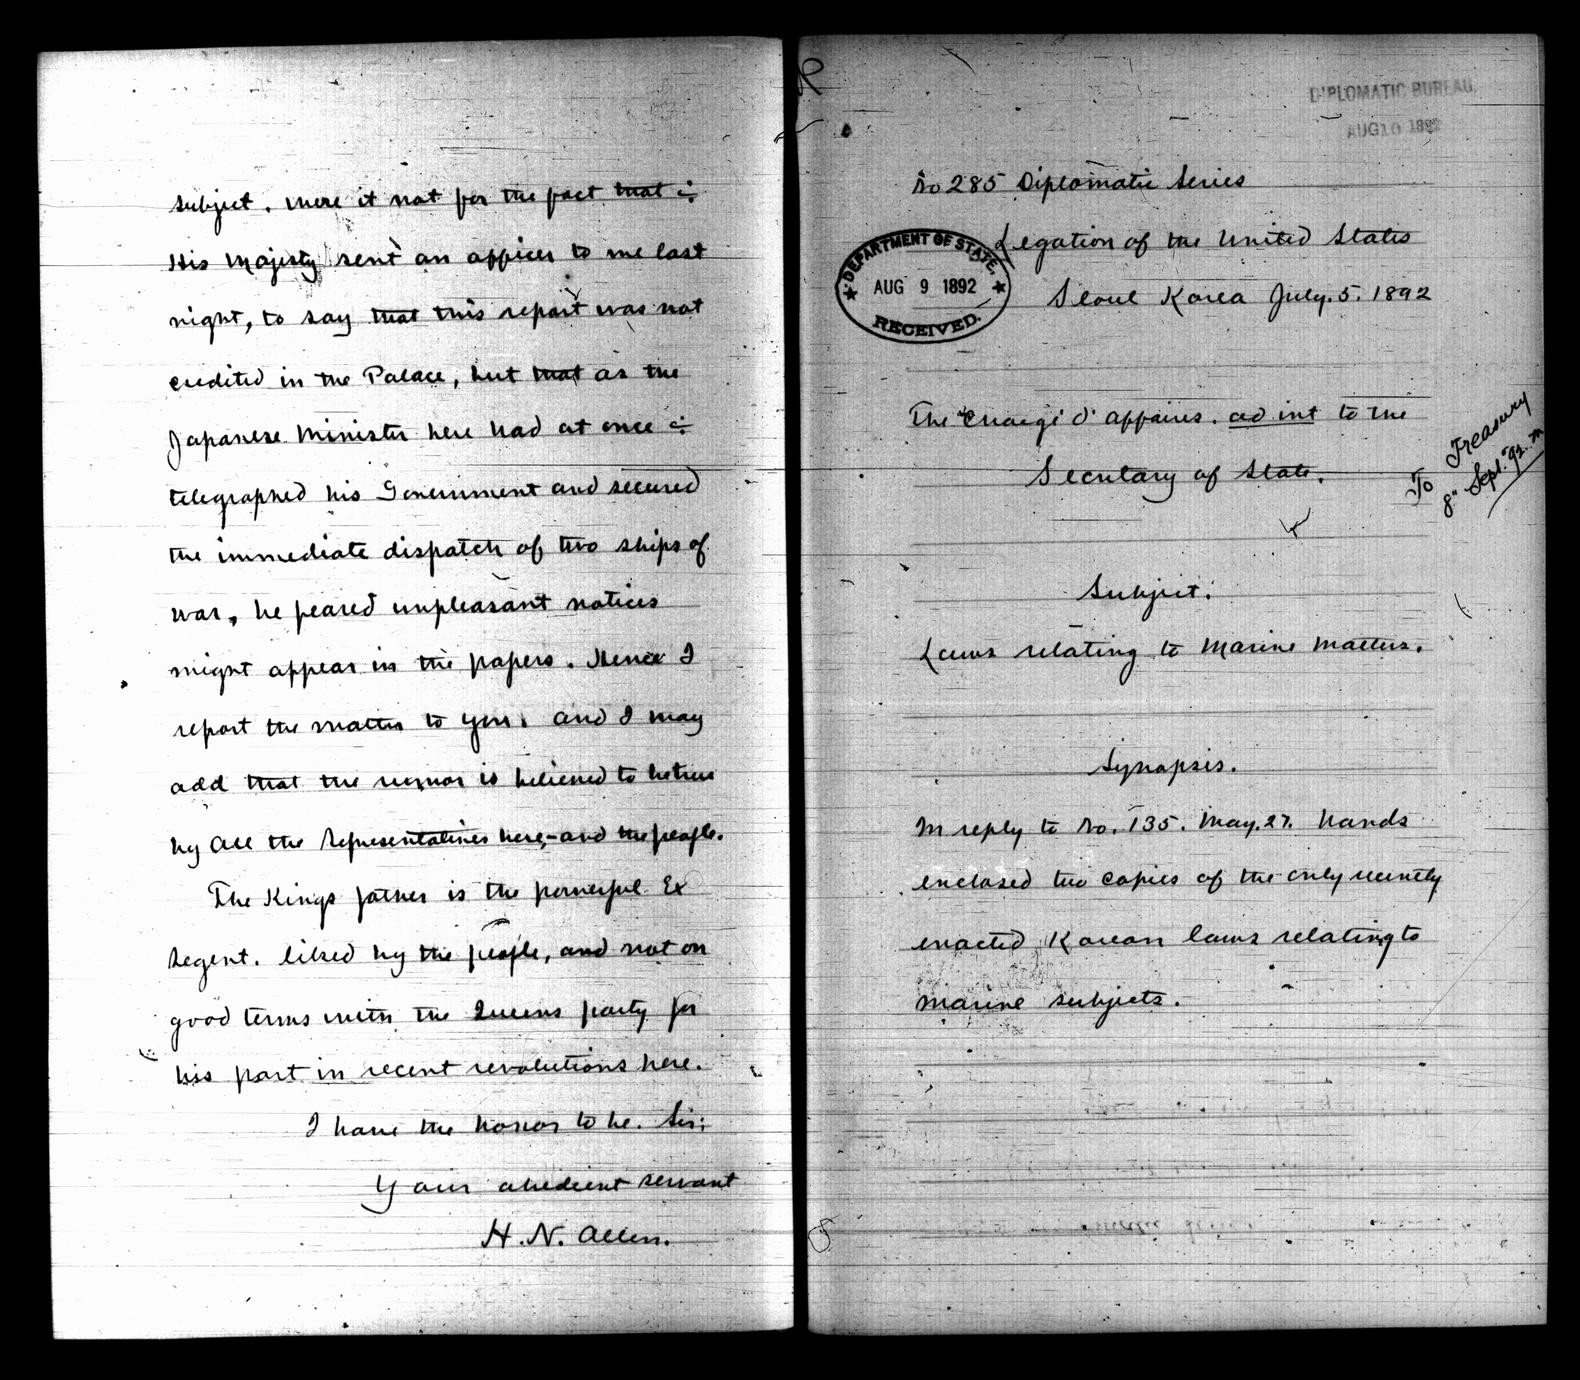 subject. were it not for the fact that
His Majesty sent an officer to me last
night, to say that this report was not
credited in the Palace, but that as the
Japanese Minister here had at once
telegraphed his Government and secured
the immediate dispatch of two ships of
war, he feared unpleasant notices
might appear in the papers. Hence I
report the matter to you. and I may
add that the rumor is believed to be true
by all the Representatives here,-and the people.
The Kings father is the powerful Ex
Regent. liked by the people, and not on
good terms with the Queens party for
his part in recent revolutions here.
I have the honor to be. Sir;
Your obedient servant
H. N. Allen.
DIPLOMATIC BUREAU
AUG 10 1892
No 285 Diplomatic Series
Legation of the United States
Seoul Korea July. 5. 1892
DEPARTMENT OF STATE.
AUG 9 1892
RECEIVED.
The Chargé d' affaires. ad int to the
Secretary of State.
To Treasury
8" Sept. '92.
Subject:
Laws relating to Marine Matters.
Synopsis.
In reply to No. 135. May. 27. Hands
enclosed two copies of the only recently
enacted Korean laws relating to
marine subjects.